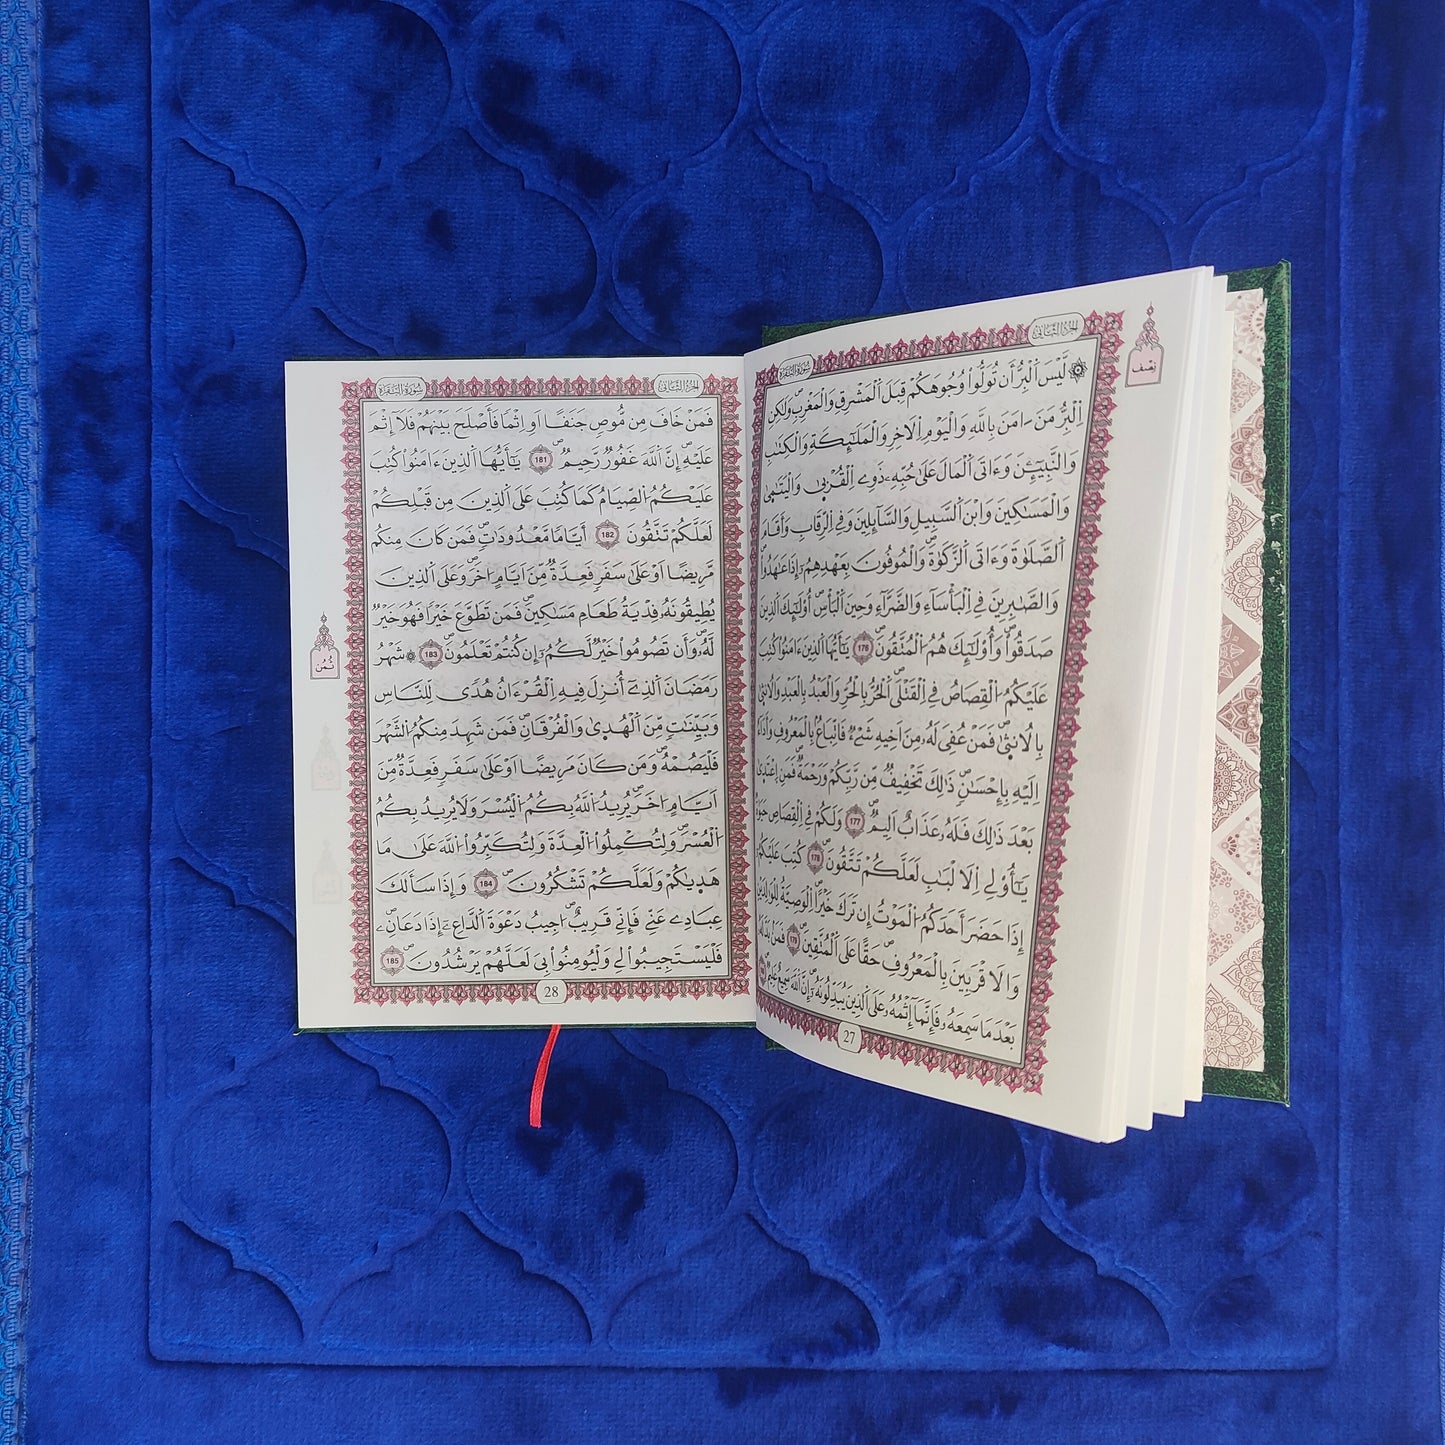 الجزء الثاني
سورة البقرة
نصف
۞ لَّيْسَ اَ۬لْبِرُّ أَن تُوَلُّواْ وُجُوهَكُمْ قِبَلَ اَ۬لْمَشْرِقِ وَالْمَغْرِبِۖ وَلَٰكِنِ
اِ۬لْبِرُّ مَنَ اٰمَنَ بِاللَّهِ وَالْيَوْمِ اِ۬لَاخِرِ وَالْمَلَٰٓئِكَةِ وَالْكِتَٰبِ
وَالنَّبِيٓـِٕۧنَ وَءَاتَى اَ۬لْمَالَ عَلَىٰ حُبِّهِۦ ذَوِے اِ۬لْقُرْبٰى وَالْيَتَٰمٰى
وَالْمَسَٰكِينَ وَابْنَ اَ۬لسَّبِيلِ وَالسَّآئِلِينَ وَفِے اِ۬لرِّقَابِ وَأَقَامَ
اَ۬لصَّلَوٰةَ وَءَاتَى اَ۬لزَّكَوٰةَۖ وَالْمُوفُونَ بِعَهْدِهِمُۥٓ إِذَا عَٰهَدُواْۖ
وَالصَّٰبِرِينَ فِے اِ۬لْبَأْسَآءِ وَالضَّرَّآءِ وَحِينَ اَ۬لْبَأْسِۖ أُوْلَٰٓئِكَ اَ۬لذِينَ
صَدَقُواْۖ وَأُوْلَٰٓئِكَ هُمُ اُ۬لْمُتَّقُونَۖ 176 يَٰٓأَيُّهَا اَ۬لذِينَ ءَامَنُواْ كُتِبَ
عَلَيْكُمُ اُ۬لْقِصَاصُ فِے اِ۬لْقَتْلَىۖ اَ۬لْحُرُّ بِالْحُرِّ وَالْعَبْدُ بِالْعَبْدِ وَالُانثٰى
بِالُانثٰىۖ فَمَنْ عُفِيَ لَهُۥ مِنَ اَخِيهِ شَےْءٞ فَاتِّبَاعُۢ بِالْمَعْرُوفِ وَأَدَآءٌ
اِلَيْهِ بِإِحْسَٰنٖۖ ذَٰلِكَ تَخْفِيفٞ مِّن رَّبِّكُمْ وَرَحْمَةٞۖ فَمَنِ اِ۪عْتَدٰى
بَعْدَ ذَٰلِكَ فَلَهُۥ عَذَابٌ اَلِيمٞۖ 177 وَلَكُمْ فِے اِ۬لْقِصَاصِ حَيَوٰةٞ
يَٰٓأُوْلِے اِ۬لَالْبَٰبِ لَعَلَّكُمْ تَتَّقُونَۖ 178 كُتِبَ عَلَيْكُمُۥٓ
إِذَا حَضَرَ أَحَدَكُمُ اُ۬لْمَوْتُ إِن تَرَكَ خَيْراًۖ اِ۬لْوَصِيَّةُ لِلْوَٰلِدَيْنِ
وَالَاقْرَبِينَ بِالْمَعْرُوفِۖ حَقّاً عَلَى اَ۬لْمُتَّقِينَۖ 179 فَمَنۢ بَدَّلَهُۥ
بَعْدَ مَا سَمِعَهُۥ فَإِنَّمَآ إِثْمُهُۥ عَلَى اَ۬لذِينَ يُبَدِّلُونَهُۥٓۖ إِنَّ اَ۬للَّهَ سَمِيعٌ عَلِيمٞۖ
27
الجزء الثاني
سورة البقرة
فَمَنْ خَافَ مِن مُّوصٖ جَنَفاً اَوِ اِثْماً فَأَصْلَحَ بَيْنَهُمْ فَلَآ إِثْمَ
عَلَيْهِۖ إِنَّ اَ۬للَّهَ غَفُورٞ رَّحِيمٞۖ 181 يَٰٓأَيُّهَا اَ۬لذِينَ ءَامَنُواْ كُتِبَ
عَلَيْكُمُ اُ۬لصِّيَامُ كَمَا كُتِبَ عَلَى اَ۬لذِينَ مِن قَبْلِكُمْ
لَعَلَّكُمْ تَتَّقُونَ 182 أَيَّاماً مَّعْدُودَٰتٖۖ فَمَن كَانَ مِنكُم
مَّرِيضاً اَوْ عَلَىٰ سَفَرٖ فَعِدَّةٞ مِّنَ اَيَّامٍ اُخَرَۖ وَعَلَى اَ۬لذِينَ
يُطِيقُونَهُۥ فِدْيَةُ طَعَامِ مَسَٰكِينَۖ فَمَن تَطَوَّعَ خَيْراً فَهُوَ خَيْرٞ
لَّهُۥۖ وَأَن تَصُومُواْ خَيْرٞ لَّكُمُۥٓ إِن كُنتُمْ تَعْلَمُونَۖ 183 ۞ شَهْرُ
رَمَضَانَ اَ۬لذِےٓ أُنزِلَ فِيهِ اِ۬لْقُرْءَانُ هُدىٗ لِّلنَّاسِ
وَبَيِّنَٰتٖ مِّنَ اَ۬لْهُدٰى وَالْفُرْقَانِۖ فَمَن شَهِدَ مِنكُمُ اُ۬لشَّهْرَ
فَلْيَصُمْهُۖ وَمَن كَانَ مَرِيضاً اَوْ عَلَىٰ سَفَرٖ فَعِدَّةٞ مِّنَ
اَيَّامٍ اُخَرَۖ يُرِيدُ اُ۬للَّهُ بِكُمُ اُ۬لْيُسْرَ وَلَا يُرِيدُ بِكُمُ
اُ۬لْعُسْرَۖ وَلِتُكْمِلُواْ اُ۬لْعِدَّةَ وَلِتُكَبِّرُواْ اُ۬للَّهَ عَلَىٰ مَا
هَدٰىكُمْ وَلَعَلَّكُمْ تَشْكُرُونَۖ 184 وَإِذَا سَأَلَكَ
عِبَادِے عَنِّے فَإِنِّے قَرِيبٌۖ اُجِيبُ دَعْوَةَ اَ۬لدَّاعِۦٓ إِذَا دَعَانِۦۖ
فَلْيَسْتَجِيبُواْ لِے وَلْيُومِنُواْ بِيَ لَعَلَّهُمْ يَرْشُدُونَۖ 185
ثُمُن
28